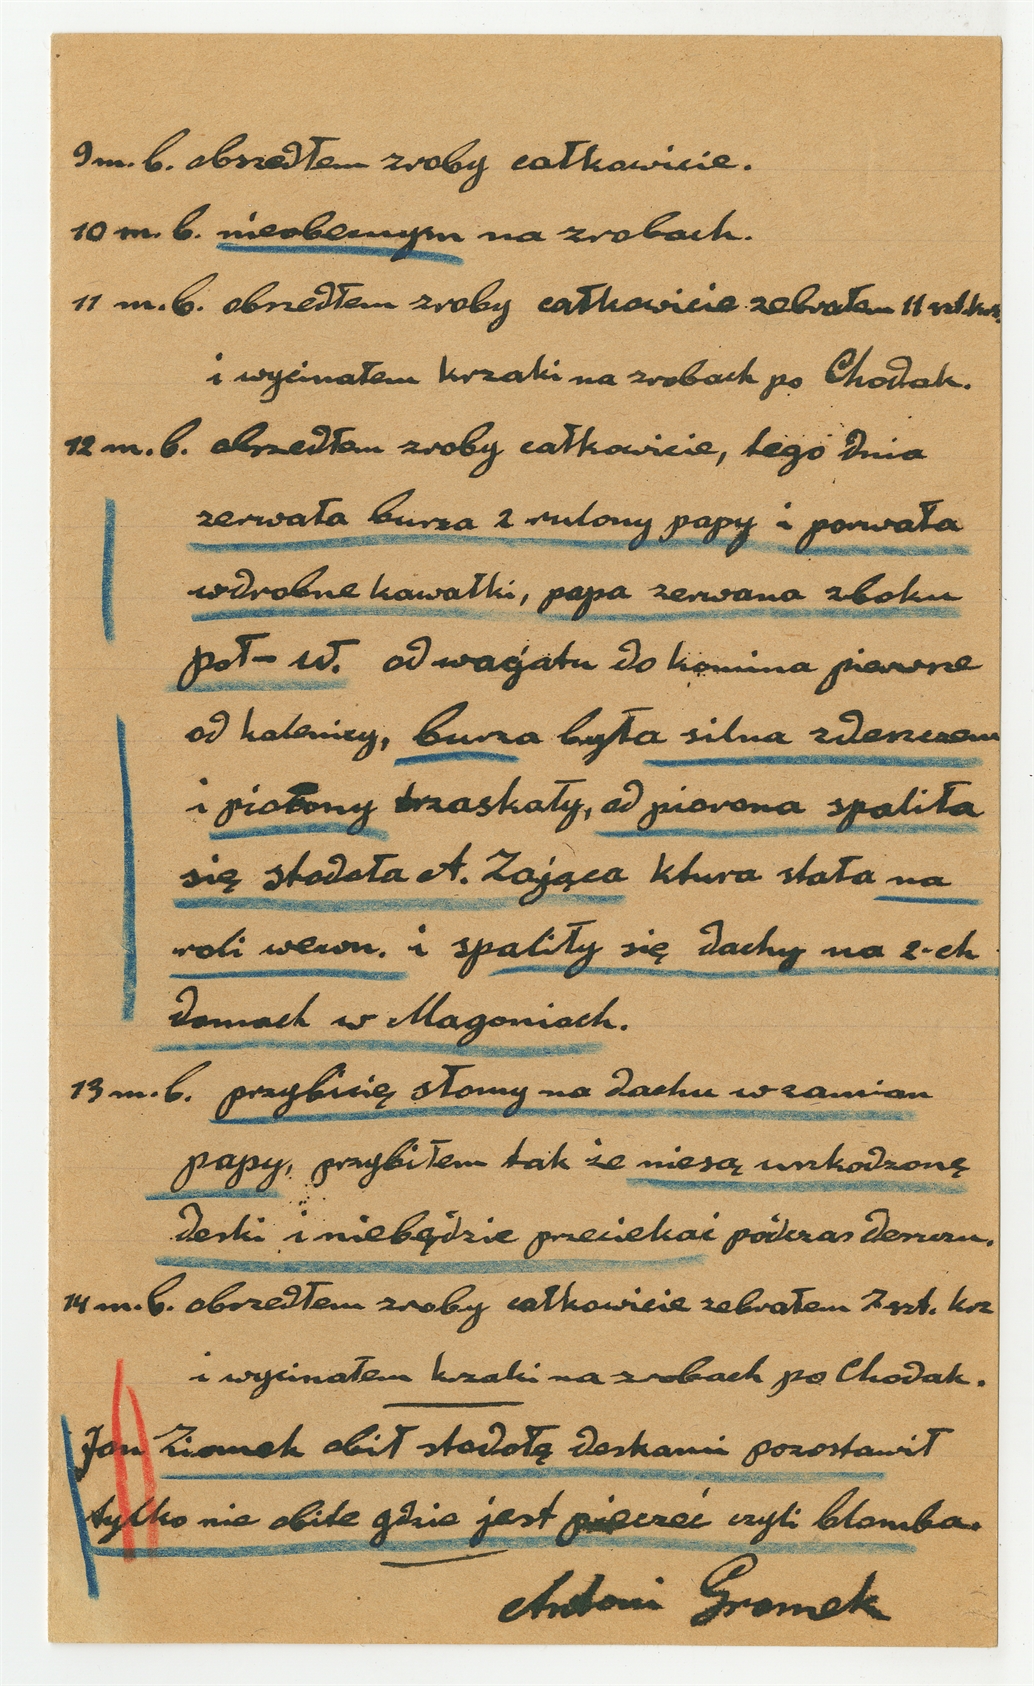 9 m. b. obszedłem zroby całkowicie.
10 m. b. nieobecnym na zrobach.
11 m. b. obszedłem zroby całkowicie zebrałem 11 szt. krz.
i wycinałem krzaki na zrobach po Chodak.
12 m. b. obszedłem zroby całkowicie, tego dnia
zerwała burza 2 rulony papy i porwała
wdrobne kawałki, papa zerwana zboku
poł - w. od wagatu do komina pierwsze
od kalenicy, burza była silna zdeszczem
i piorony trzaskały, od piorona spaliła
się stodoła A. Zająca ktura stała na
roli wewn. i spaliły się dachy na 2-ch
domach w Magoniach.
13 m. b. przybicię słomy na dachu w zamian
papy, przybiłem tak że niesą uszkodzonę
deski i niebędzie przeciekać pódczas deszczu.
14 m. b. obszedłem zroby całkowicie zebrałem 7 szt. krz
i wycinałem krzaki na zrobach po Chodak.
Jan Ziomek obił stodołę deskami pozostawił
tylko nie obite gdzie jest pieczeć czyli blomba.
Antoni Gromek